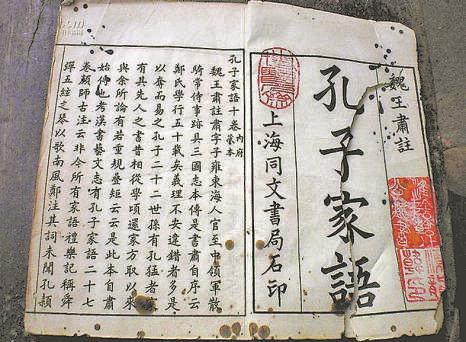 魏王肅註
孔子家語
上海同文書局石印
孔子家語十卷 內府藏本
魏王肅註肅字子雍東海人官至中領軍散
騎常侍事蹟具三國志本傳是書肅自序云
鄭氏學行五十載矣義理不安違錯者多是
以奪而易之孔子二十二世孫有孔猛者家
有其先人之書昔相從學頃還家方取以來
與余所論有若重規疊矩云云是此本自肅
始傳也考漢書藝文志有孔子家語二十七
卷顏師古注云非今所有家語禮樂記稱舜
彈五絃之琴以歌南風鄭注其詞未聞孔穎